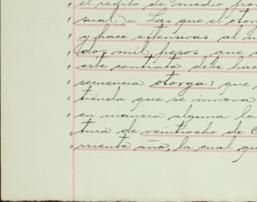 el rédito de medio por
sual. — Las que el otor
y hace estensivas al m
dos mil pesos que
este contrato debe hac
secuencia otorga: que
tienda que se innova
en manera alguna la
tura de veintiocho de O
rriente año, la cual qu